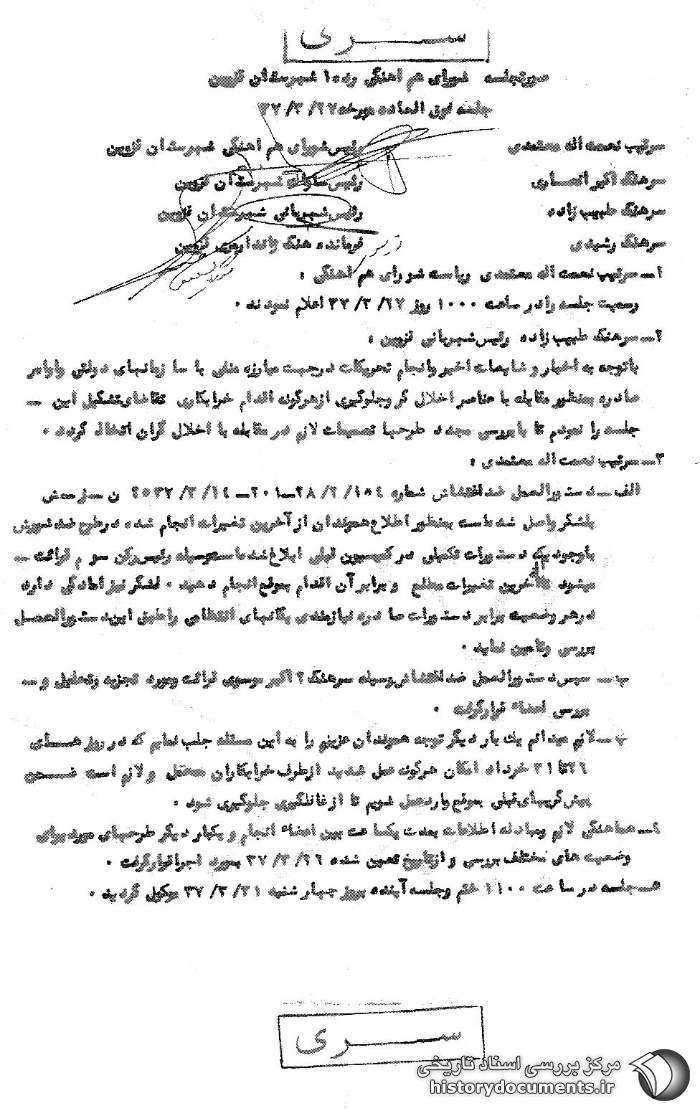 ســـری
صورتجلسه شورای هم اهنگی رده ۱ شهرستان قزوین
جلسه فوق العاده مورخه ۲۷/ ۳/ ۳۷
سرتیپ نعمت اله معتمدی رئیس شورای هم اهنگی شهرستان قزوین
سرهنگ اکبر انصاری رئیس ساواک شهرستان قزوین
سرهنگ طبیب زاده رئیس شهربانی شهرستان قزوین
سرهنگ رشیدی فرمانده هنگ ژاندارمری قزوین
۱ــ سرتیپ نعمت اله معتمدی ریاست شورای هم اهنگی :
رسمیت جلسه را در ساعت ۱۰۰۰ روز ۲۷/ ۳/ ۳۷ اعلام نمودند ۰
۲ــ سرهنگ طبیب زاده رئیس شهربانی قزوین :
باتوجه به اخبار و شایعات اخیر وانجام تحریکات درجهت مبارزه منفی با سا زمانهای دولتی واوامر
صادره بمنظور مقابله با عناصر اخلال گر وجلوگیری ازهرگونه اقدام خرابکاری تقاضای تشکیل این ــ
جلسه را نمودم تا با بررسی مجدد طرحها تصمیمات لازم در مقابله با اخلال گران اتخاذ گردد ۰
۳ــ سرتیپ نعمت اله معتمدی :
الف ــ دستورالعمل ضداغتشاش شماره
بلشگر واصل شده است بمنظور اطلاع هموندان از آخرین تغییرات انجام شده درطرح ضدشورش
باوجودیکه دستورات تکمیلی در کمیسیون قبلی ابلاغ شده است بوسیله رئیس رکن سو م قرائت ــ
میشود تا ازآخرین تغییرات مطلع و برابر آن اقدام بموقع انجام دهید ۰ لشگر نیز آمادگی دارد
درهر وضعیت برابر دستورات صا دره نیازمندی یگانهای انتظامی را طبق این دستورالعمل
بررسی وتامین نماید ۰
ب ــ سپس دستورالعمل ضداغتشاش بوسیله سرهنگ ۲ اکبر موسوی قرائت ومورد تجزیه وتحلیل و ــ
بررسی اعضاء قرارگرفت ۰
پ ــ لازم میدانم یک بار دیگر توجه هموندان عزیزم را به این مسئله جلب نمایم که در روز هــای
۲۹ تا ۳۱ خرداد امکان هرگونه عمل شدید ازطرف خرابکاران محتمل و لازم است ضــمن
پیش گریهای قبلی بموقع وارد عمل شویم تا از غافلگیری جلوگیری شود ۰
۴ــ هماهنگی لازم ومبادله اطلاعات بمدت یکسا عت بین اعضاء انجام و یکبار دیگر طرحهای مورد برای
وضعیت های مختلف بررسی و ازتاریخ تعیین شده ۲۹/ ۳/ ۳۷ بمورد اجرا قرارگرفت ۰
۵ــ جلسه در سا عت ۱۱۰۰ ختم وجلسه آینده بروز چهار شنبه ۳۱/ ۳/ ۳۷ موکول گردید ۰
ســـری
مرکز بررسی اسناد تاریخی
historydocuments.ir